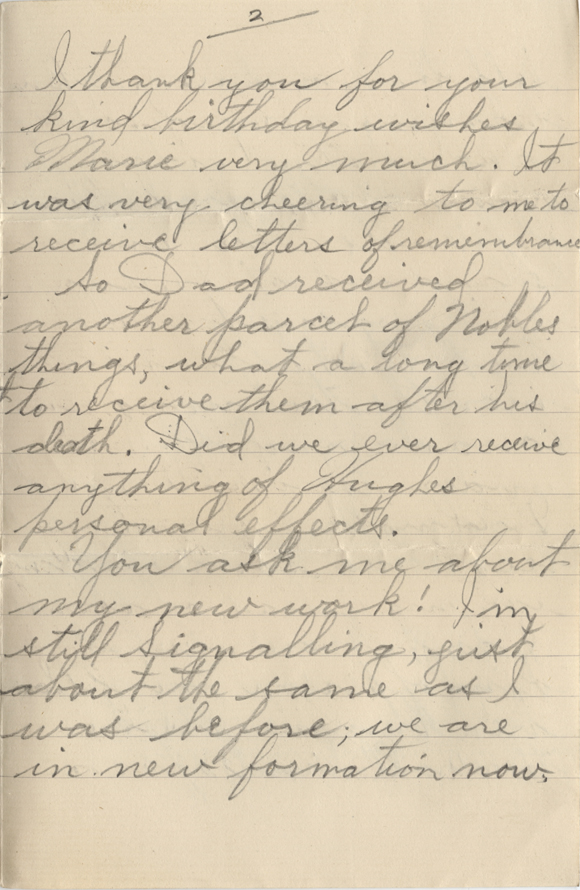 2
I thank you for your
kind birthday wishes
Marie very much. It
was very cheering to me to
receive letters of remembrance
So Dad received
another parcel of Nobles
things, what a long time
to receive them after his
death. Did we ever receive
anything of Hughes
personal effects.
You ask me about
my new work! I'm
still signalling, just
about the same as I
was before; we are
in new formation now.